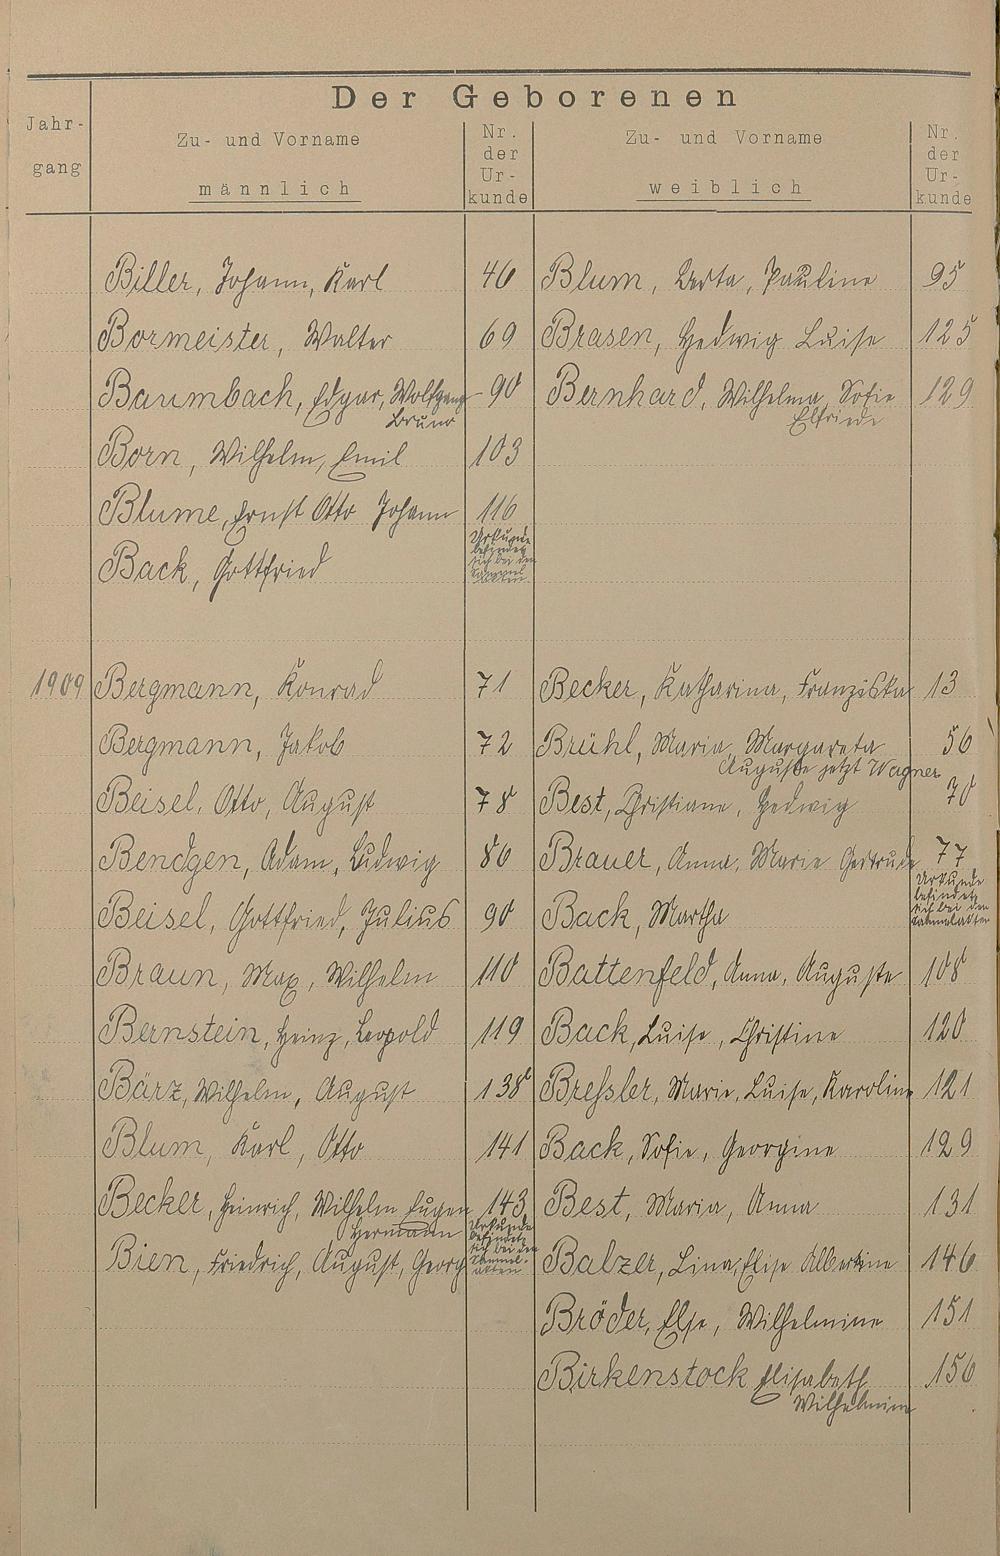 Der Geborenen
Jahr-
gang
Zu- und Vorname
männlich
Nr.
der
Ur-
kunde
Zu- und Vorname
weiblich
Nr.
der
Ur-
kunde
Biller, Johann, Karl 46 Blum, Berta, Pauline 95
Bormeister, Walter 69 Brasen, Hedwig Luise 125
Baumbach, Edgar, Wolfgang 90 Bernhard, Wilhelma, Sofie 129
Bruno Elfriede
Born, Wilhelm, Emil 103
Blume, Ernst Otto Johann 116
Back, Gottfried Urkunde
befindet
sich bei den
Sammel
akten
1909 Bergmann, Konrad 71 Becker, Katharina, Franziska 13
Bergmann, Jakob 72 Brühl, Maria, Margareta 56
Auguste jetzt Wagner
Beisel, Otto, August 78 Best, Christiane, Hedwig 70
Bendgen, Adam, Ludwig 86 Brauer, Anna, Marie Gertrude 77
Beisel, Gottfried, Julius 90 Back, Martha Urkunde
befindet
sich bei den
Sammelakten
Braun, Max, Wilhelm 110 Battenfeld, Anna, Auguste 108
Bernstein, Heinz, Leopold 119 Back, Luise, Christine 120
Bärz, Wilhelm, August 138 Breßler, Marie, Luise, Karoline 121
Blum, Karl, Otto 141 Back, Sofie, Georgine 129
Becker, Heinrich, Wilhelm Eugen 143 Best, Maria, Anna 131
Hermann
Bien, Friedrich, August, Georg Urkunde
befindet
sich bei den
Sammel-
akten Balzer, Lina, Elise Albertine 146
Bröder, Else, Wilhelmine 151
Birkenstock Elisabeth 156
Wilhelmine